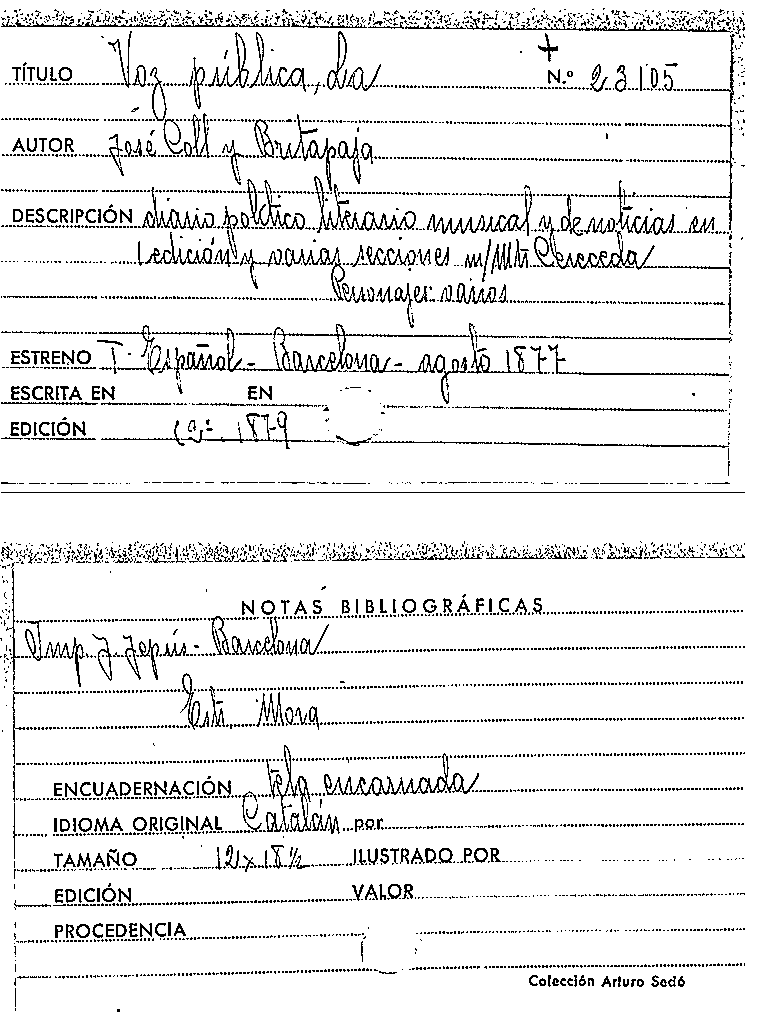 TÍTULO Voz pública, La + N.º 23105
AUTOR José Coll y Britapaja
DESCRIPCIÓN diario político literario musical y de noticias en
1 edición y varias secciones m/ Mtr Cereceda
Personajes: varios
ESTRENO T. Español - Barcelona - agosto 1877
ESCRITA EN EN
EDICIÓN 1879
NOTAS BIBLIOGRÁFICAS
Imp. J. Jepús - Barcelona
Estr. Mora
ENCUADERNACIÓN tela encarnada
IDIOMA ORIGINAL Catalán por
TAMAÑO 12 x 18 ½ ILUSTRADO POR
EDICIÓN VALOR
PROCEDENCIA
Colección Arturo Sedó